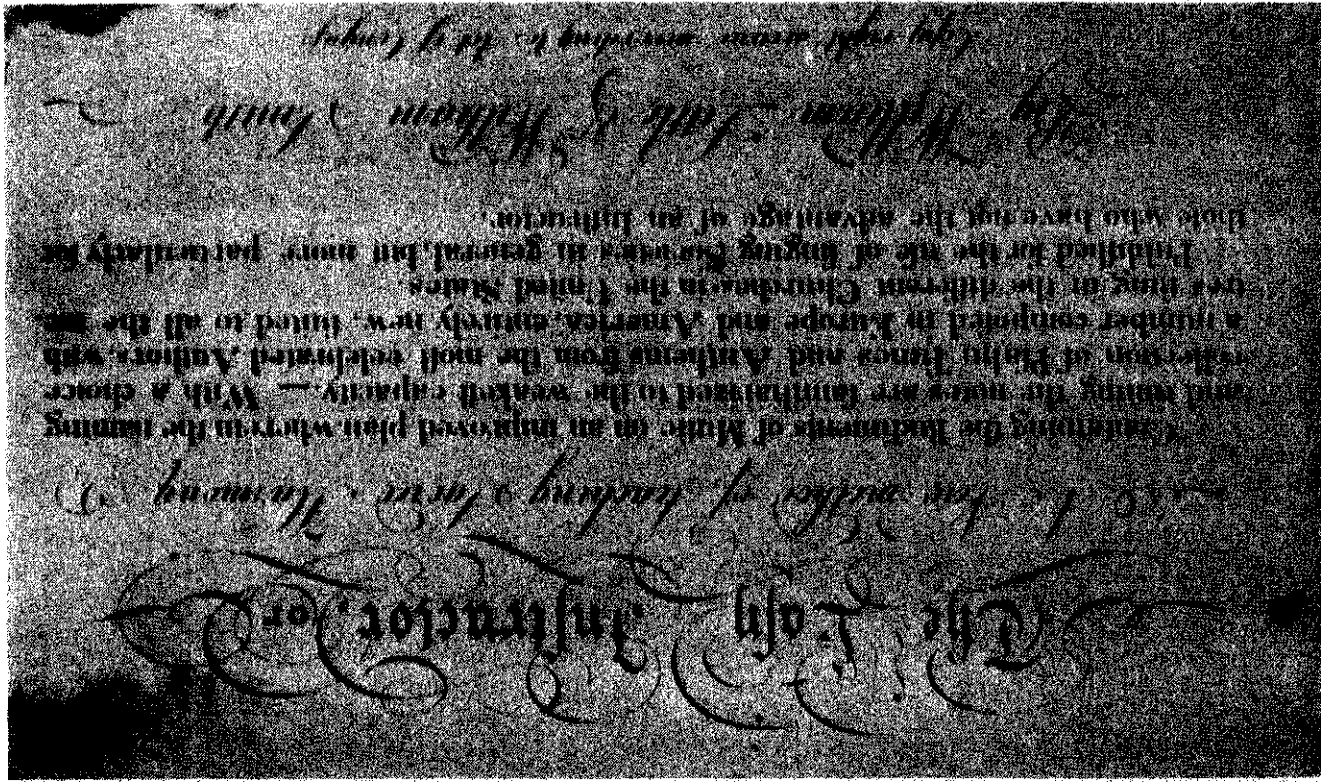 The Easy Instructor, or
A New method of teaching Sacred Harmony
Containing the Rudiments of Music on an improved plan wherein the naming
and timing the notes are familiarized to the weakest capacity — With a choice
collection of Pſalm Tunes and Anthems from the moſt celebrated Authors, with
a number compoſed in Europe and America, entirely new, ſuited to all the
tres ſung in the different Churches in the United States.
Publiſhed for the uſe of ſinging Societies in general, but more particularly for
thoſe who have not the advantage of an Inſtructor.
By William Little & William Smith
Copy right secured according to Act of Congress